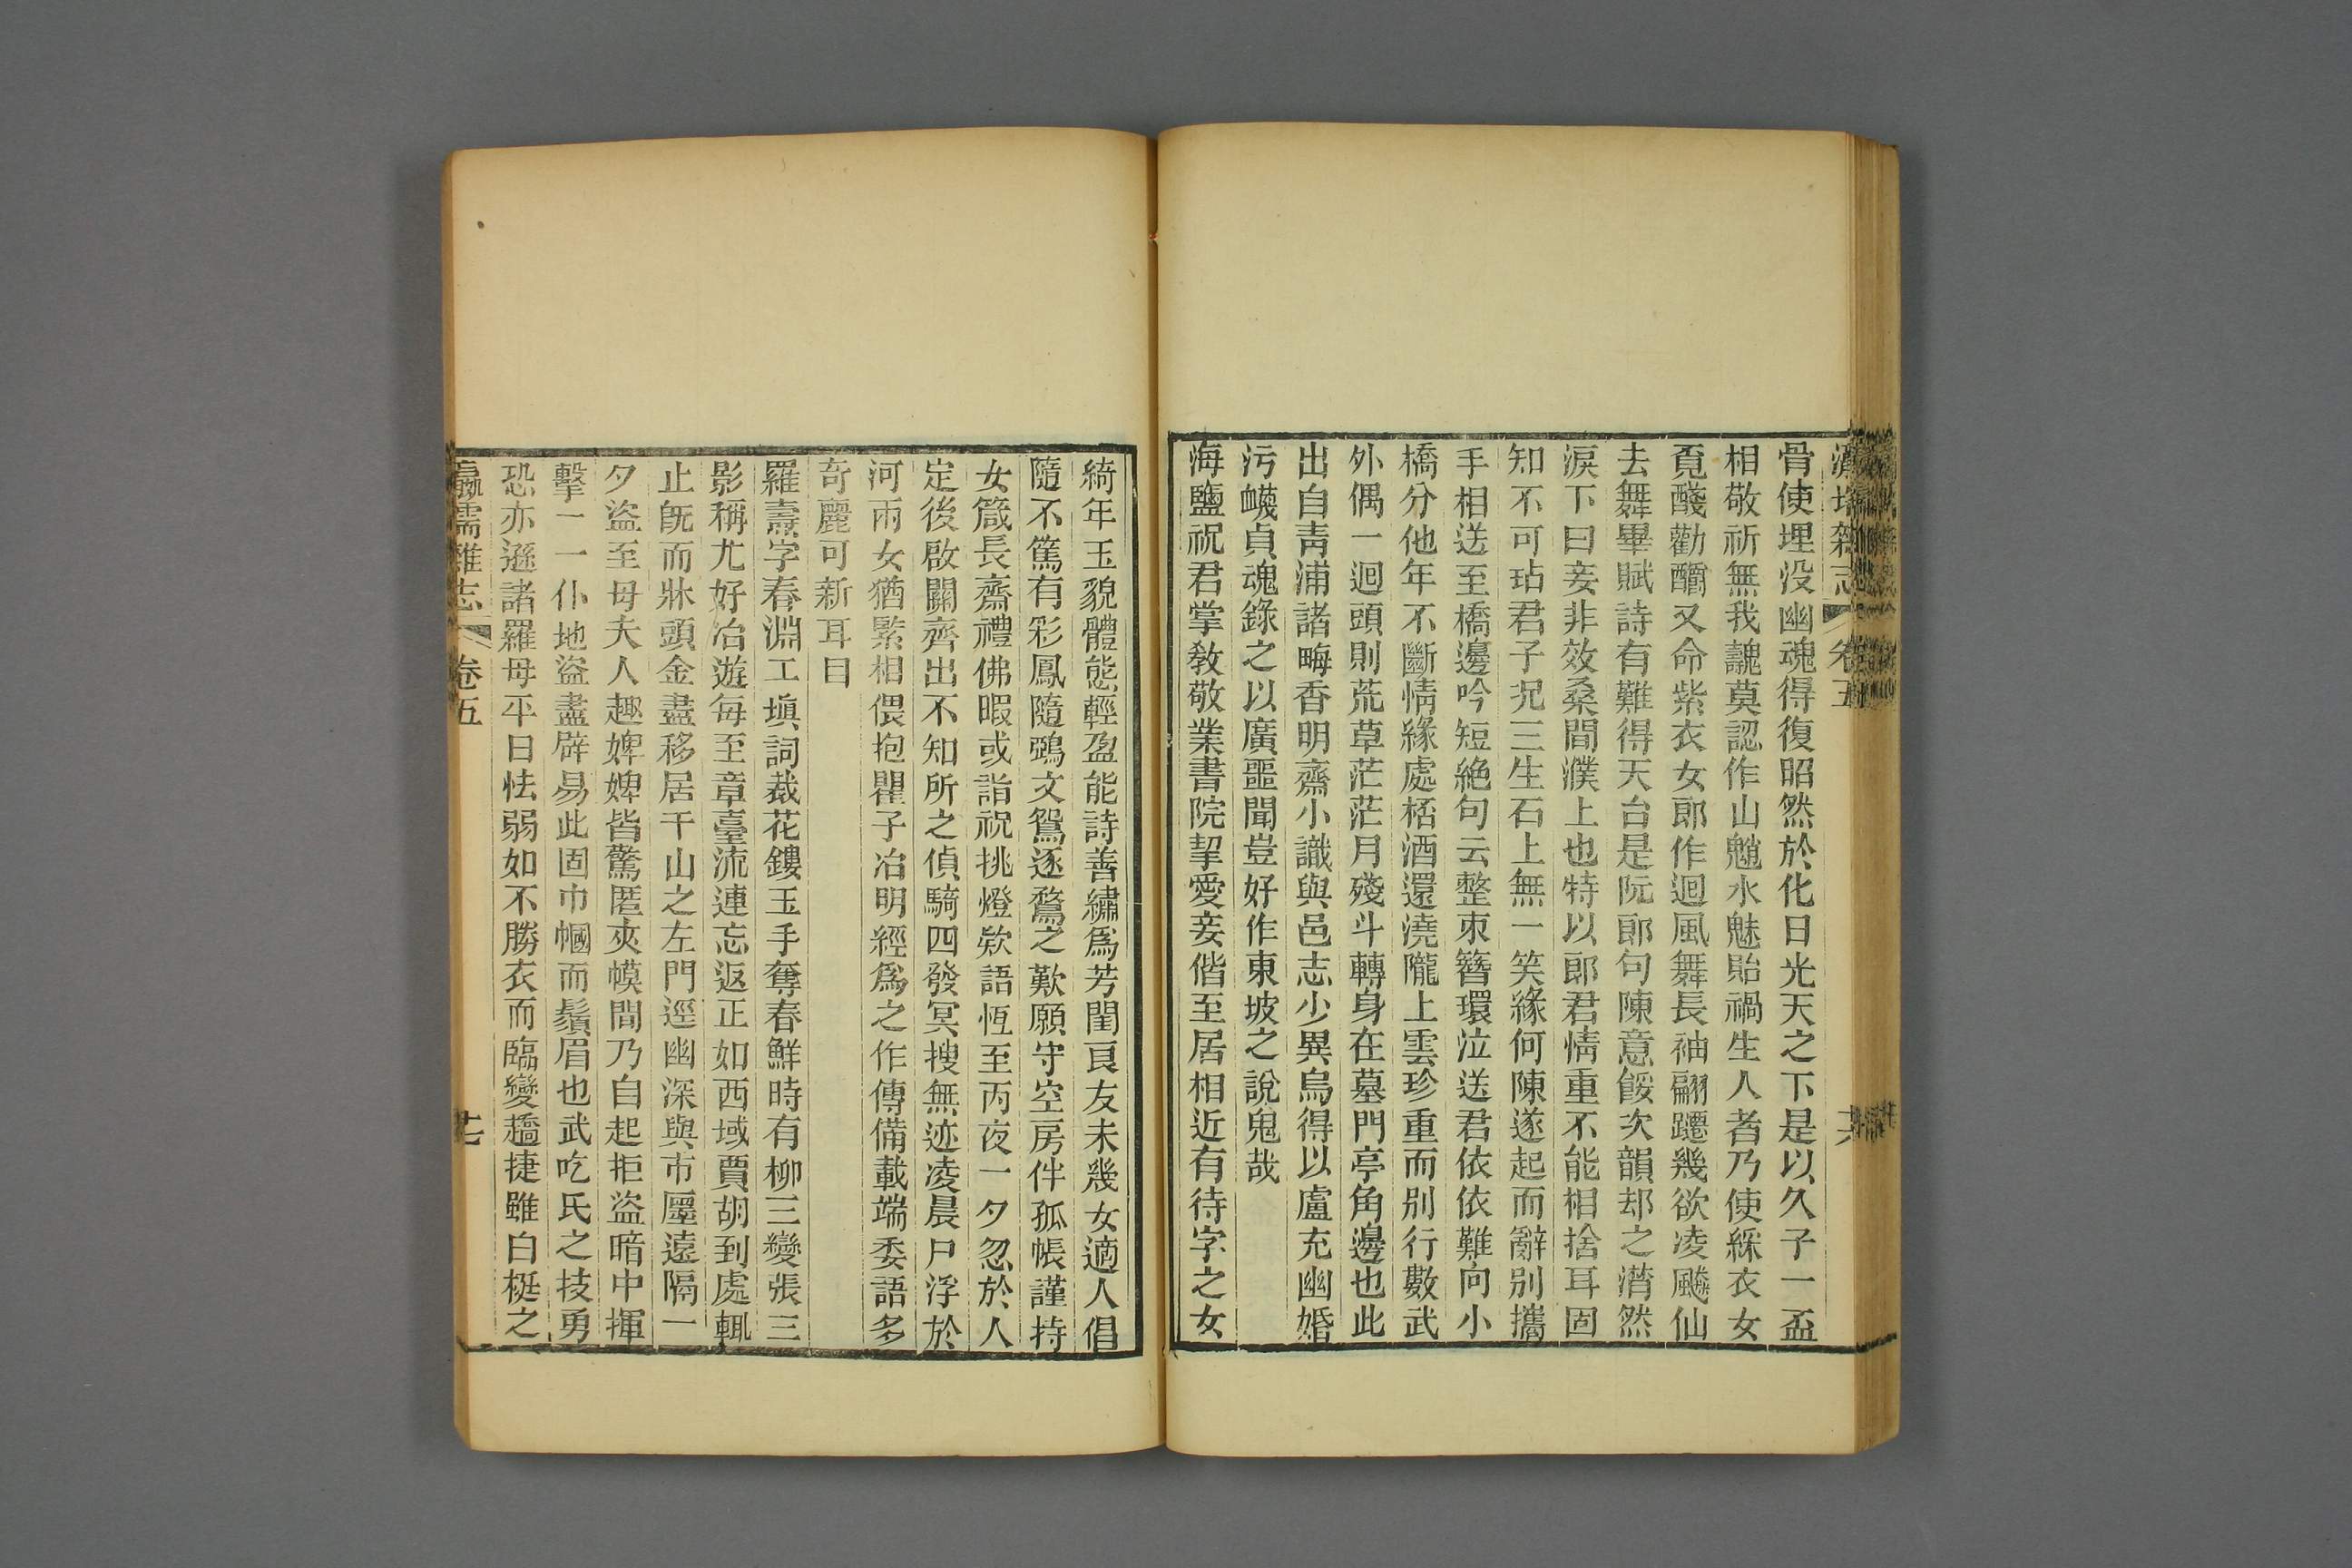 雜志 卷五
骨使埋没幽魂得復昭然於化日光天之下是以久子一盃
相敬祈無我醜莫認作山魈水魅貽禍生人者乃使綵衣女
覔醆勸酹又命紫衣女郎作迴風舞長袖翩躚幾欲凌飈仙
去舞畢賦詩有難得天台是阮郎句陳意餒次韻却之潸然
淚下曰妾非效桑間濮上也特以郎君情重不能相捨耳固
知不可玷君子况三生石上無一笑緣何陳遂起而辭别攜
手相送至橋邊吟短絶句云整朿簪環泣送君依依難向小
橋分他年不斷情緣處桮酒還澆隴上雲珍重而别行數武
外偶一迴頭則荒草茫茫月殘斗轉身在墓門亭角邊也此
出自靑浦諸畮香明齋小識與邑志少異烏得以盧充幽婚
污衊貞魂錄之以廣噩聞豈好作東坡之說鬼哉
海鹽祝君掌教敬業書院挈愛妾偕至居相近有待字之女
綺年玉貌體態輕盈能詩善繡爲芳閨良友未幾女適人倡
隨不篤有彩鳳隨鴉文鴛逐鶩之歎願守空房伴孤帳謹持
女箴長齋禮佛暇或詣祝挑燈欵語恆至丙夜一夕忽於人
定後啟關齊出不知所之偵騎四發冥搜無迹凌晨尸浮於
河兩女猶緊相偎抱瞿子冶明經爲之作傳備載端委語多
奇麗可新耳目
羅壽字春淵工塡詞裁花鏤玉手奪春鮮時有柳三變張三
影稱尤好冶遊每至章臺流連忘返正如西域賈胡到處輒
止旣而牀頭金盡移居干山之左門逕幽深與市廛遠隔一
夕盜至母夫人趣婢婢皆驚匿夾幙間乃自起拒盜暗中揮
擊一一仆地盜盡辟易此固巾幗而鬚眉也武吃氏之技勇
恐亦遜諸羅母平日怯弱如不勝衣而臨變趫捷雖白梃之
瀛壖雜志 卷五 廿七